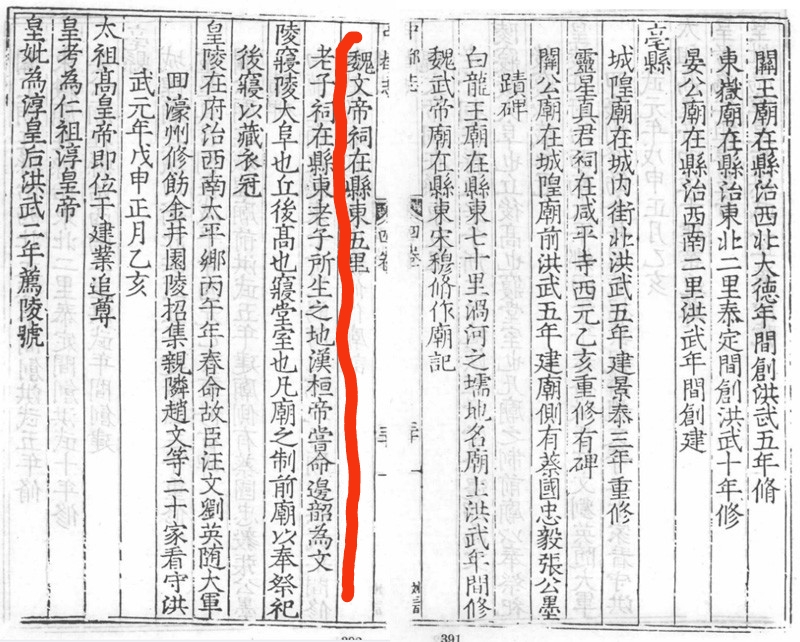 關王廟在縣治西北大德年間創洪武五年脩
東嶽廟在縣治東北二里泰定間創洪武十年修
晏公廟在縣治西南二里洪武年間創建
亳縣
城隍廟在城内街北洪武五年建景泰三年重修
靈星真君祠在咸平寺西元乙亥重修有碑
關公廟在城隍廟前洪武五年建廟側有蔡國忠毅張公墨
蹟碑
白龍王廟在縣東七十里渦河之壖地名廟上洪武年間修
魏武帝廟在縣東宋穆脩作廟記
魏文帝祠在縣東五里
老子祠在縣東老子所生之地漢桓帝嘗命邊韶為文
陵寢陵大阜也丘後髙也寢堂室也凡廟之制前廟以奉祭祀
後寢以藏衣冠
皇陵在府治西南太平鄉丙午年春命故臣汪文劉英随大軍
囬濠州修飭金井園陵招集親隣趙文等二十家看守洪
武元年戊申正月乙亥
太祖髙皇帝即位于建業追尊
皇考為仁祖淳皇帝
皇妣為淳皇后洪武二年薦陵號
391